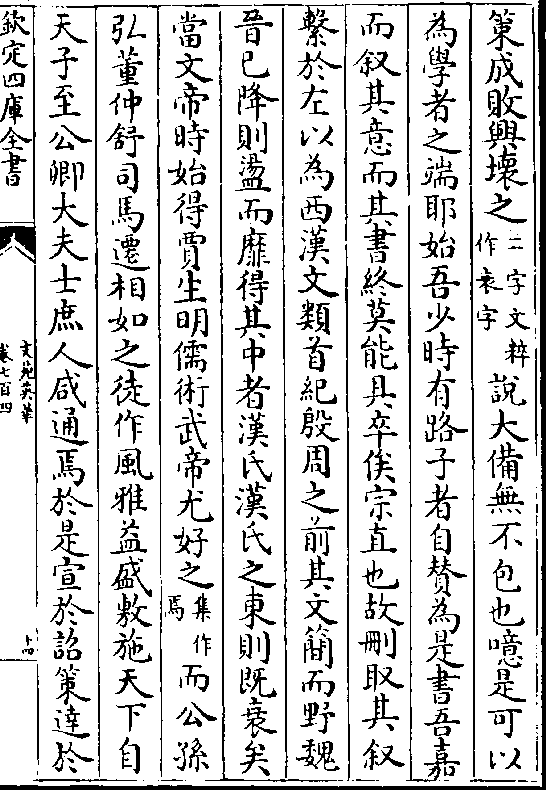 策成敗興壞之二字文粹作衰字說大備無不包也噫是可以
為學者之端耶始吾少時有路子者自贊為是書吾嘉
而叙其意而其書終莫能具卒俟宗直也故刪取其叙
繫於左以為西漢文類首紀殷周之前其文簡而野魏
晉已降則盪而靡得其中者漢氏漢氏之東則既衰矣
當文帝時始得賈生明儒術武帝尤好之集作焉而公孫
弘董仲舒司馬遷相如之徒作風雅益盛敷施天下自
天子至公卿大夫士庶人咸通焉於是宣於詔策達於
欽定四庫全書
文苑英華
卷七百四
十四